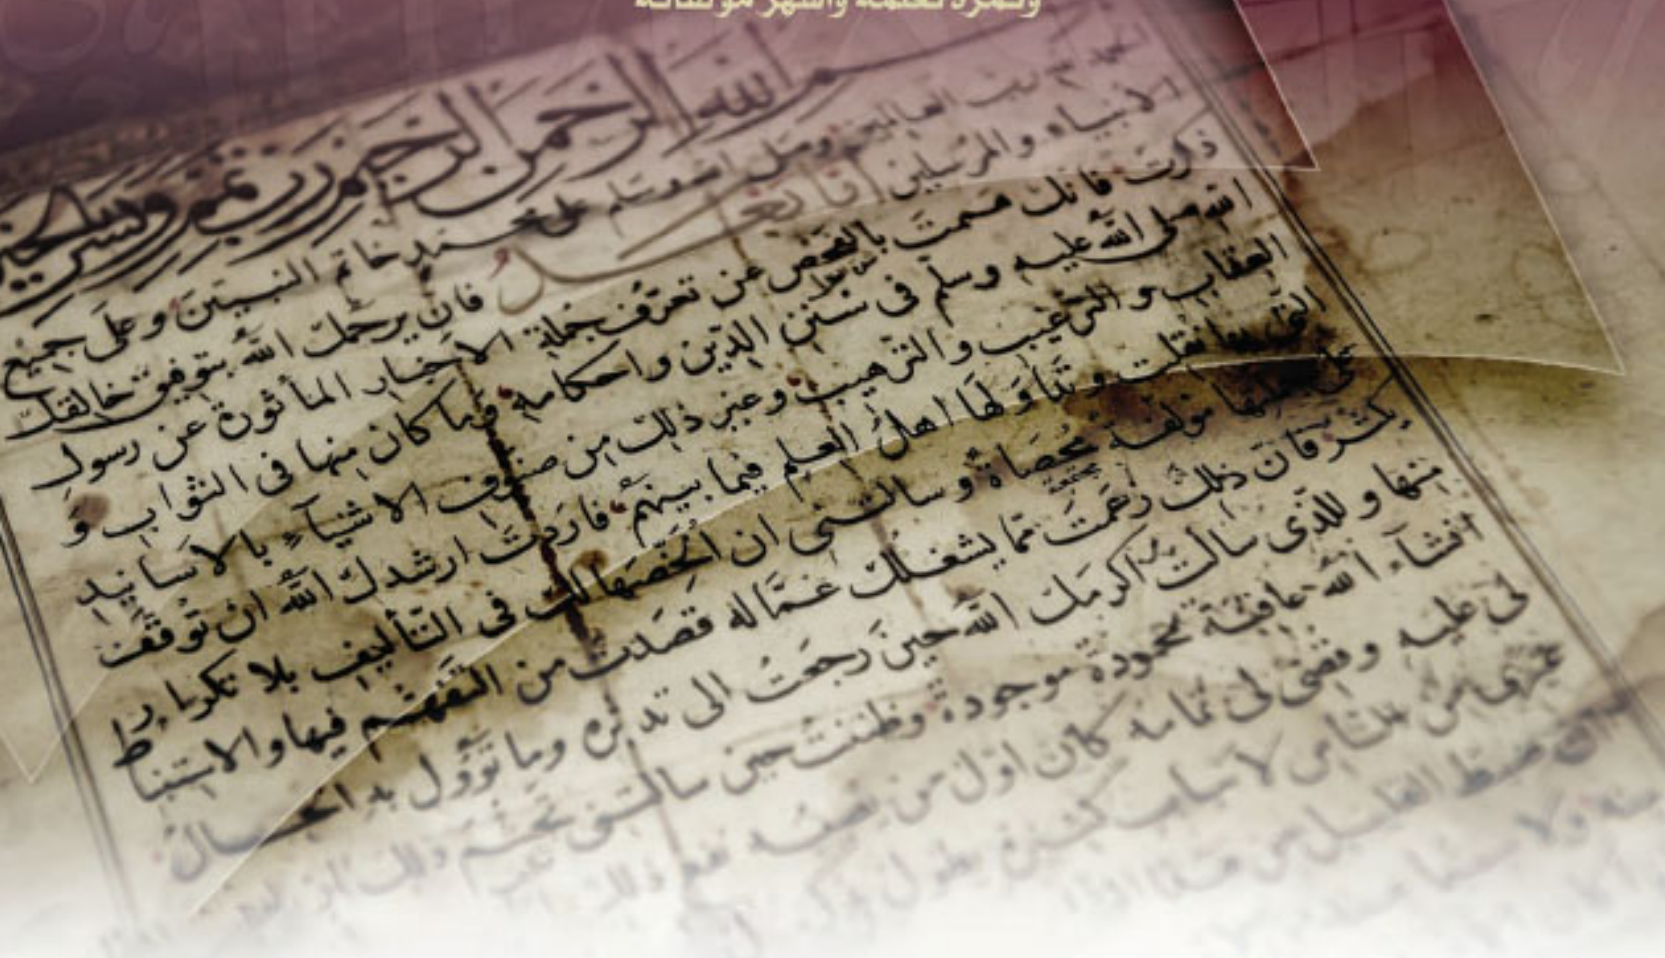 وثمرة تعلمه وأشهر مؤلفاته
بسم الله الرحمن الرحيم رب تمم ويسر
رب العالمين وصلى الله وسلم على محمد خاتم النبيين وعلى جميع
الانبياء والمرسلين اما بعد فانك يرحمك الله بتوفيق خالقك
ذكرت فانك هممت بالفحص عن تعرف جملة الاخبار المأثورة عن رسول
الله صلى الله عليه وسلم فى سنن الدين واحكامه وما كان منها فى الثواب و
العقاب والترغيب والترهيب وغير ذلك من صنوف الاشياء بالاسانيد
التى بها نقلت وتداولها اهل العلم فيما بينهم فاردت ارشدك الله ان توقف
على جملتها مؤلفة محصاة وسالتنى ان الخصها لك فى التأليف بلا تكرار
يكثر فان ذلك زعمت مما يشغلك عما له قصدت من التفهم فيها والاستنباط
منها وللذى سالت اكرمك الله حين رجعت الى تدبره وما تؤول به الحال
انشاء الله عاقبة محمودة موجودة وظننت حين سالتنى تجشم ذلك ان
لى عليه وقضى لى تمامه كان اول من يصيبه نفع ذلك
غيرى من الناس لاسباب كثيرة يطول
ضبط القليل من هذا